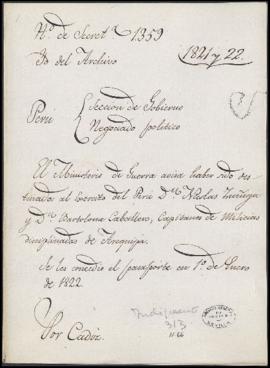 Nº de Secret.ª 1359
30 del Archivo
1821 y 22.
Peru
Seccion de Gobierno
Negociado politico
El Ministerio de Guerra avisa haber sido des-
tinados al Exercito del Peru D.n Nicolas
y D.n Bartolome Caballero, Capitanes de Milicias
disciplinadas de Arequipa.
Se les concedio el pasaporte en 1º de Enero
de 1822.
Por Cadiz.
Indiferente
313